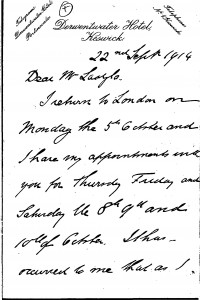 Derwentwater Hotel,
Keswick
22nd Sept 1914
Dear Mr Laszlo.
I return to London on
Monday the 5th October and
I have my appointments with
you for Thursday Friday and
Saturday the 8th 9th and
10th of October. It has
occurred to me that as I